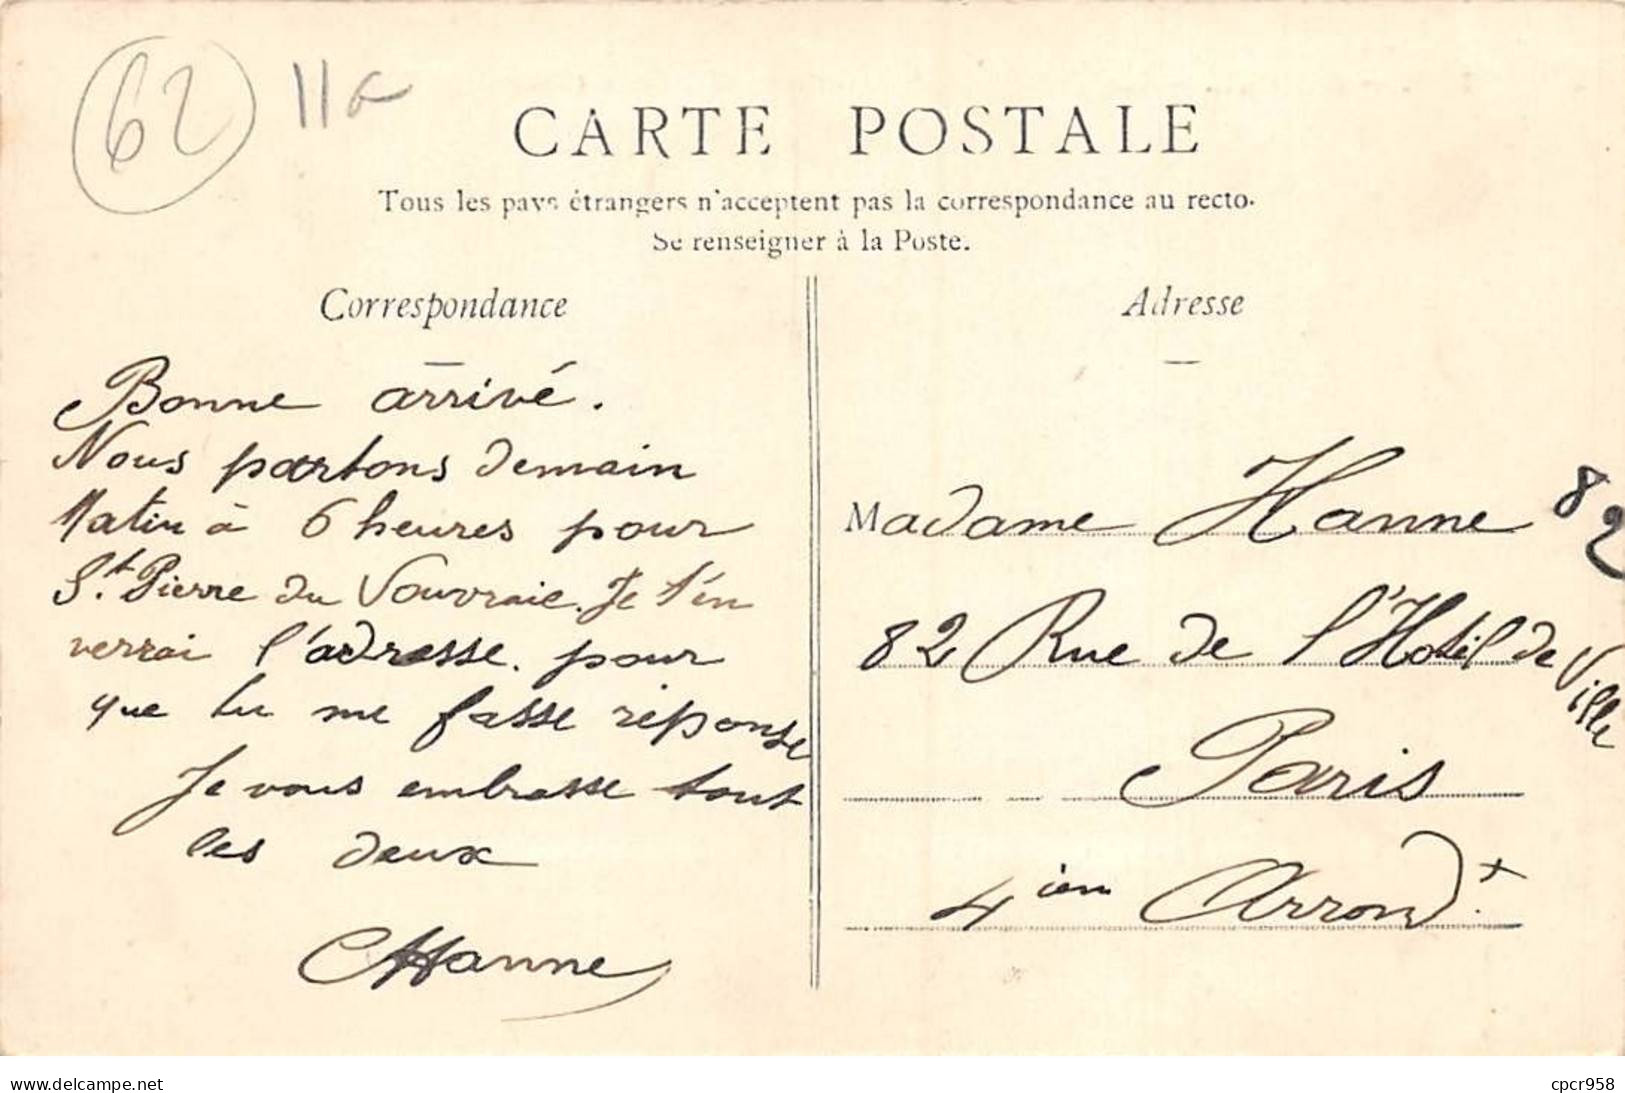 62 11
CARTE POSTALE
Tous les pays étrangers n'acceptent pas la correspondance au recto.
Se renseigner à la Poste.
Correspondance
Bonne arrivé.
Nous partons demain
Matin à 6 heures pour
St. Pierre du Vouvraie. Je t'en
verrai l'adresse. pour
que tu me fasse réponse
Je vous embrasse tout
les deux
Hanne
Adresse
Madame Hanne 82
82 Rue de l'Hotel de Ville
Paris
4ièm Arrondt.
www.delcampe.net
cpcr958